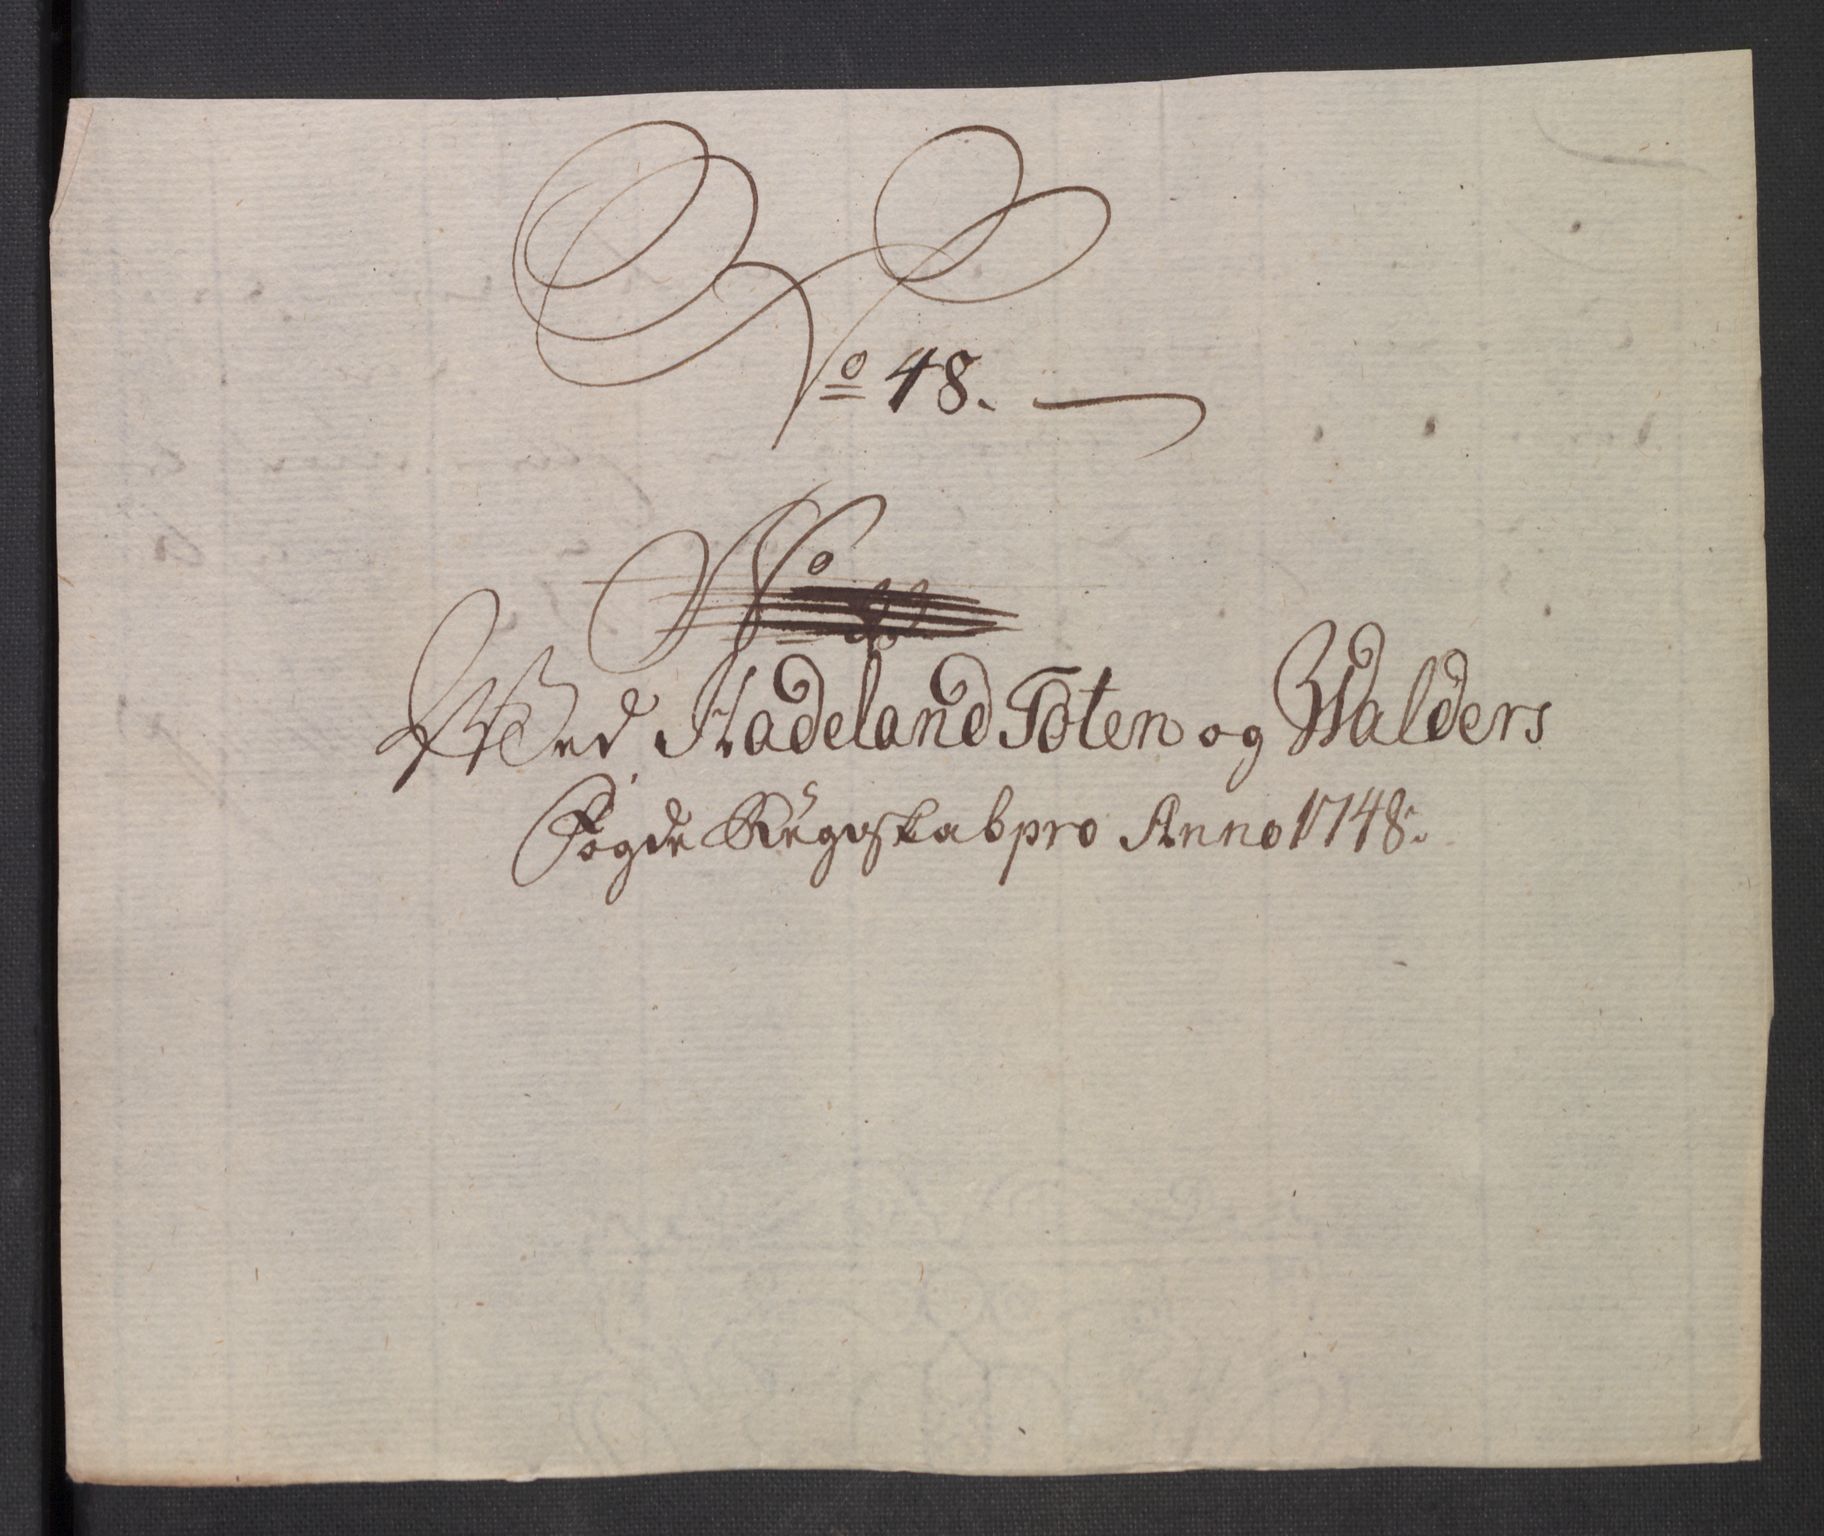 No 48.
No
Wed Hadeland Toten og Walders
Fogde Regnskab pro Anno 1748.